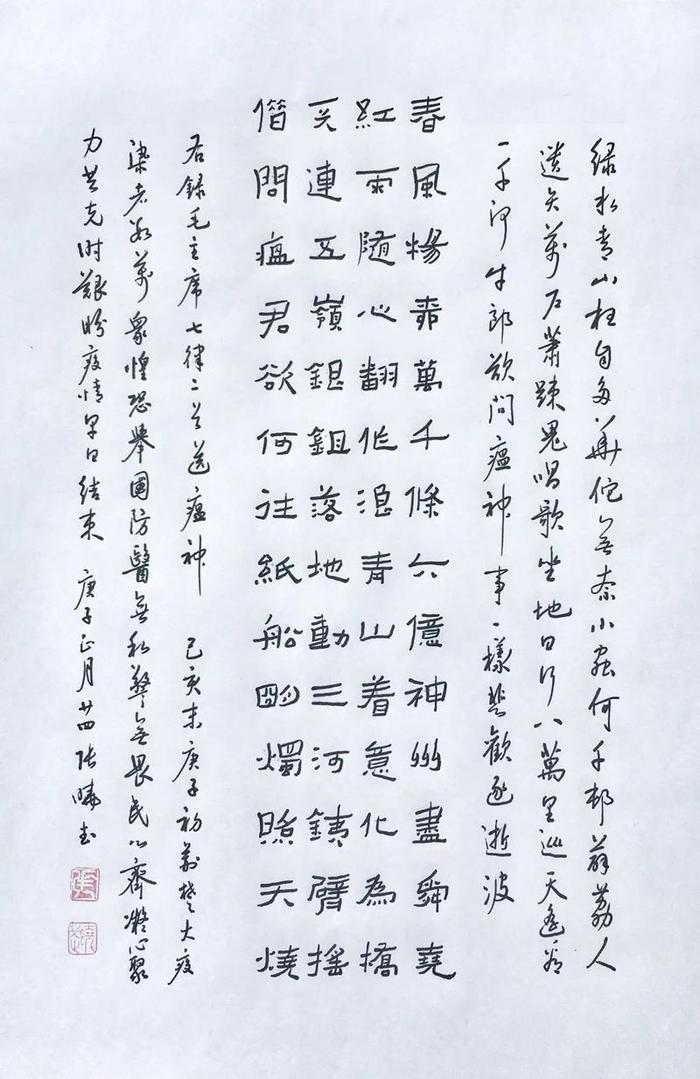 綠水青山枉自多華佗無奈小蟲何千邨薜荔人
遺矢萬戶蕭疎鬼唱歌坐地日行八萬里巡天遙看
一千河牛郎欲問瘟神事一樣悲歡逐逝波
春風楊柳萬千條六億神州盡舜堯
紅雨隨心翻作浪青山着意化為橋
天連五嶺銀鋤落地動三河鐵臂搖
借問瘟君欲何往紙船明燭照天燒
右錄毛主席七律二首送瘟神 己亥末庚子初荊楚大疫
染者數萬衆惶恐舉國防醫無私警無畏民心齊凝心聚
力共克时艱盼疫情早日结束 庚子正月廿四張曉書